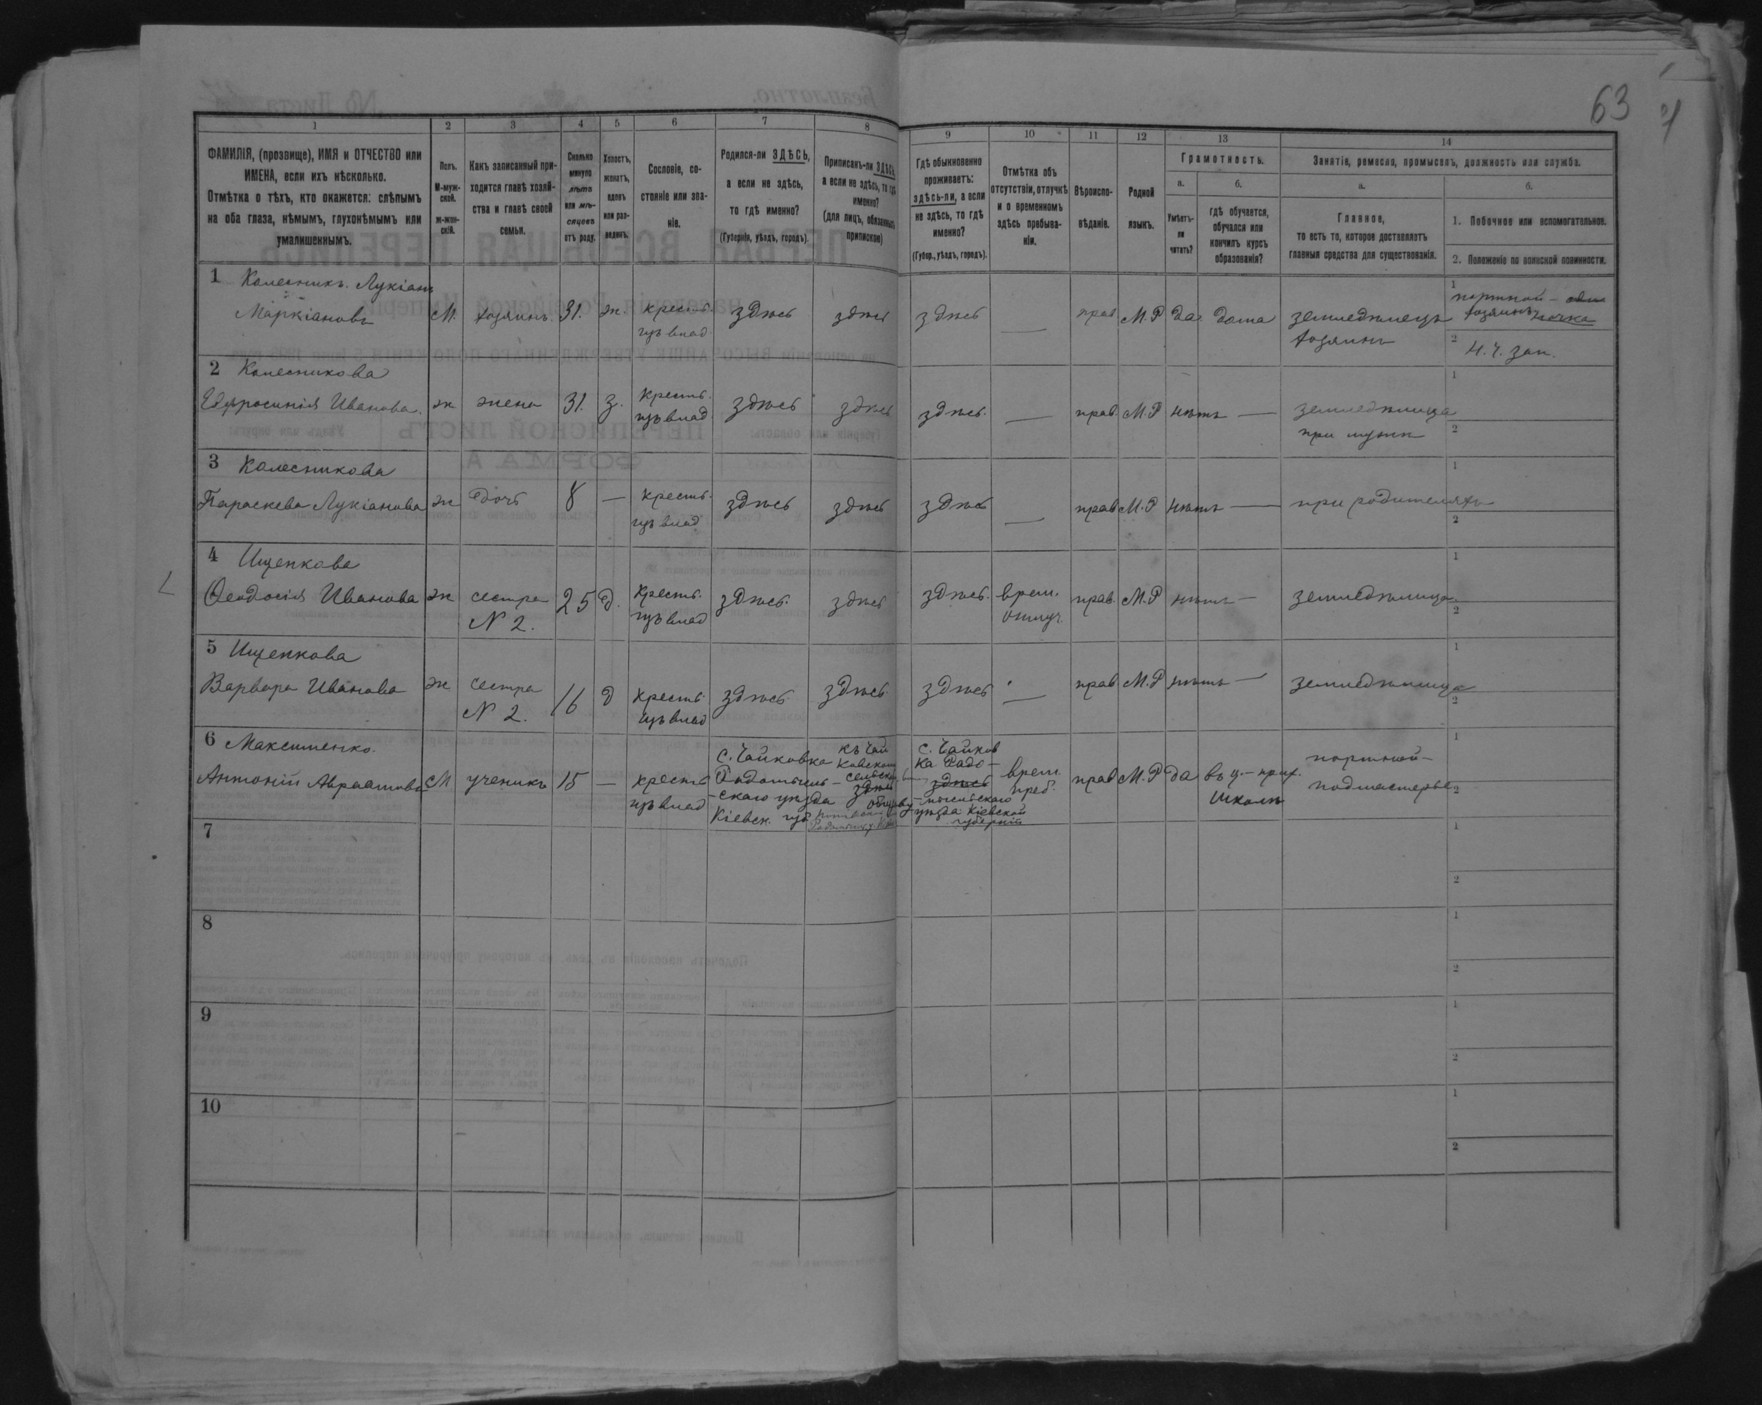 63
1 2 3 4 5 6 7 8 9 10 11 12 13 14
ФАМИЛІЯ, (прозвище), ИМЯ и ОТЧЕСТВО или
ИМЕНА, если ихъ нѣсколько.
Отмѣтка о тѣхъ, кто окажется: слѣпымъ
на оба глаза, нѣмымъ, глухонѣмымъ или
умалишеннымъ.
Полъ.
М-муж-
ской.
ж-жен-
скій.
Какъ записанный при-
ходится главѣ хозяй-
ства и главѣ своей
семьи.
Сколько
минуло
лѣтъ
или мѣ-
сяцевъ
отъ роду.
Холостъ,
женатъ,
вдовъ
или раз-
веденъ.
Сословіе, со-
стояніе или зва-
ніе.
Родился-ли ЗДѢСЬ,
а если не здѣсь,
то гдѣ именно?
(Губернія, уѣздъ, городъ).
Приписанъ-ли ЗДѢСЬ,
а если не здѣсь, то гдѣ
именно?
(для лицъ, обязанныхъ
припискою)
Гдѣ обыкновенно
проживаетъ:
здѣсь-ли, а если
не здѣсь, то гдѣ
именно?
(Губер., уѣздъ, городъ).
Отмѣтка объ
отсутствіи, отлучкѣ
и о временномъ
здѣсь пребыва-
ніи.
Вѣроиспо-
вѣданіе.
Родной
языкъ.
Грамотность.
а.
Умѣетъ-
ли
читать?
б.
гдѣ обучается,
обучался или
кончилъ курсъ
образованія?
Занятіе, ремесло, промыселъ, должность или служба.
а.
Главное,
то есть то, которое доставляетъ
главныя средства для существованія.
б.
1. Побочное или вспомогательное.
2. Положеніе по воинской повинности.
1 Колесникъ Лукіанъ
Маркіановъ М. хозяинъ 31. ж крестьян.
изъ влад. здѣсь здѣсь здѣсь — прав М.Р да дома земледѣлецъ
хозяинъ
1 портной-
хозяинъ
2 Н. Ч. зап.
2 Колесникова
Евфросинія Иванова. ж жена 31. з. крестьян.
изъ влад здѣсь здѣсь здѣсь. — прав. М.Р нѣтъ — земледѣлица
при мужѣ
1
2
3 Колесникова
Параскева Лукіанова ж дочь 8 — крестьян.
изъ влад здѣсь здѣсь здѣсь — прав М.Р нѣтъ — при родителяхъ
1
2
4 Ищенкова
Ѳеодосія Иванова ж сестра
N 2. 25 д. крестьян.
изъ влад здѣсь. здѣсь здѣсь. врем.
отлуч. прав. М.Р нѣтъ — земледѣлица
1
2
5 Ищенкова
Варвара Иванова ж сестра
N 2. 16 д крестьян.
изъ влад здѣсь здѣсь здѣсь — прав М.Р нѣтъ — земледѣлица
1
2
6 Максименко.
Антоній Авраамовъ М ученикъ 15 — крестьян
изъ влад
с. Чайковка
Радомысль-
скаго уѣзда
Кіевск. губ
къ Чай
ковском
сельском
здѣсь
общству
с. Чайков
ка Радо-
здѣсь
-мысльскаго
уѣзда Кіевской
губерніи
врем.
преб. прав М.Р да въ ц.-прих.
школѣ
портной-
подмастерье
1
2
7
1
2
8
1
2
9
1
2
10
1
2